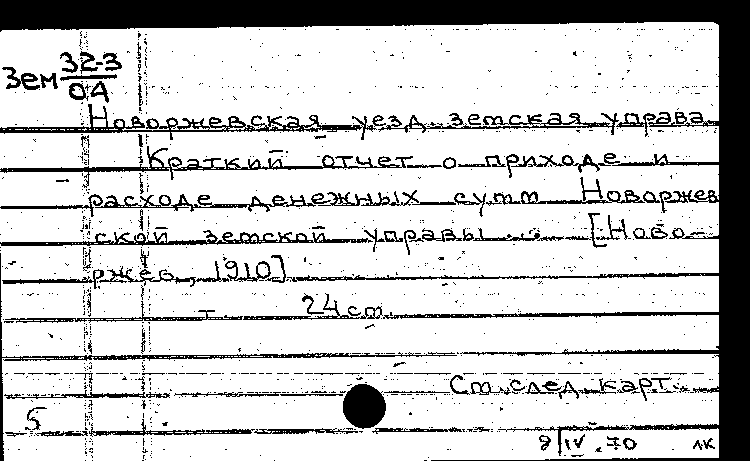 Зем 32-3
04
Новоржевская уезд. земская управа
Краткий отчет о приходе и
расходе денежных сумм Новоржев
ской земской управы ... [Ново-
ржев, 1910]
24 ст.
См. след. карт.
5
9/IV.70 ЛК